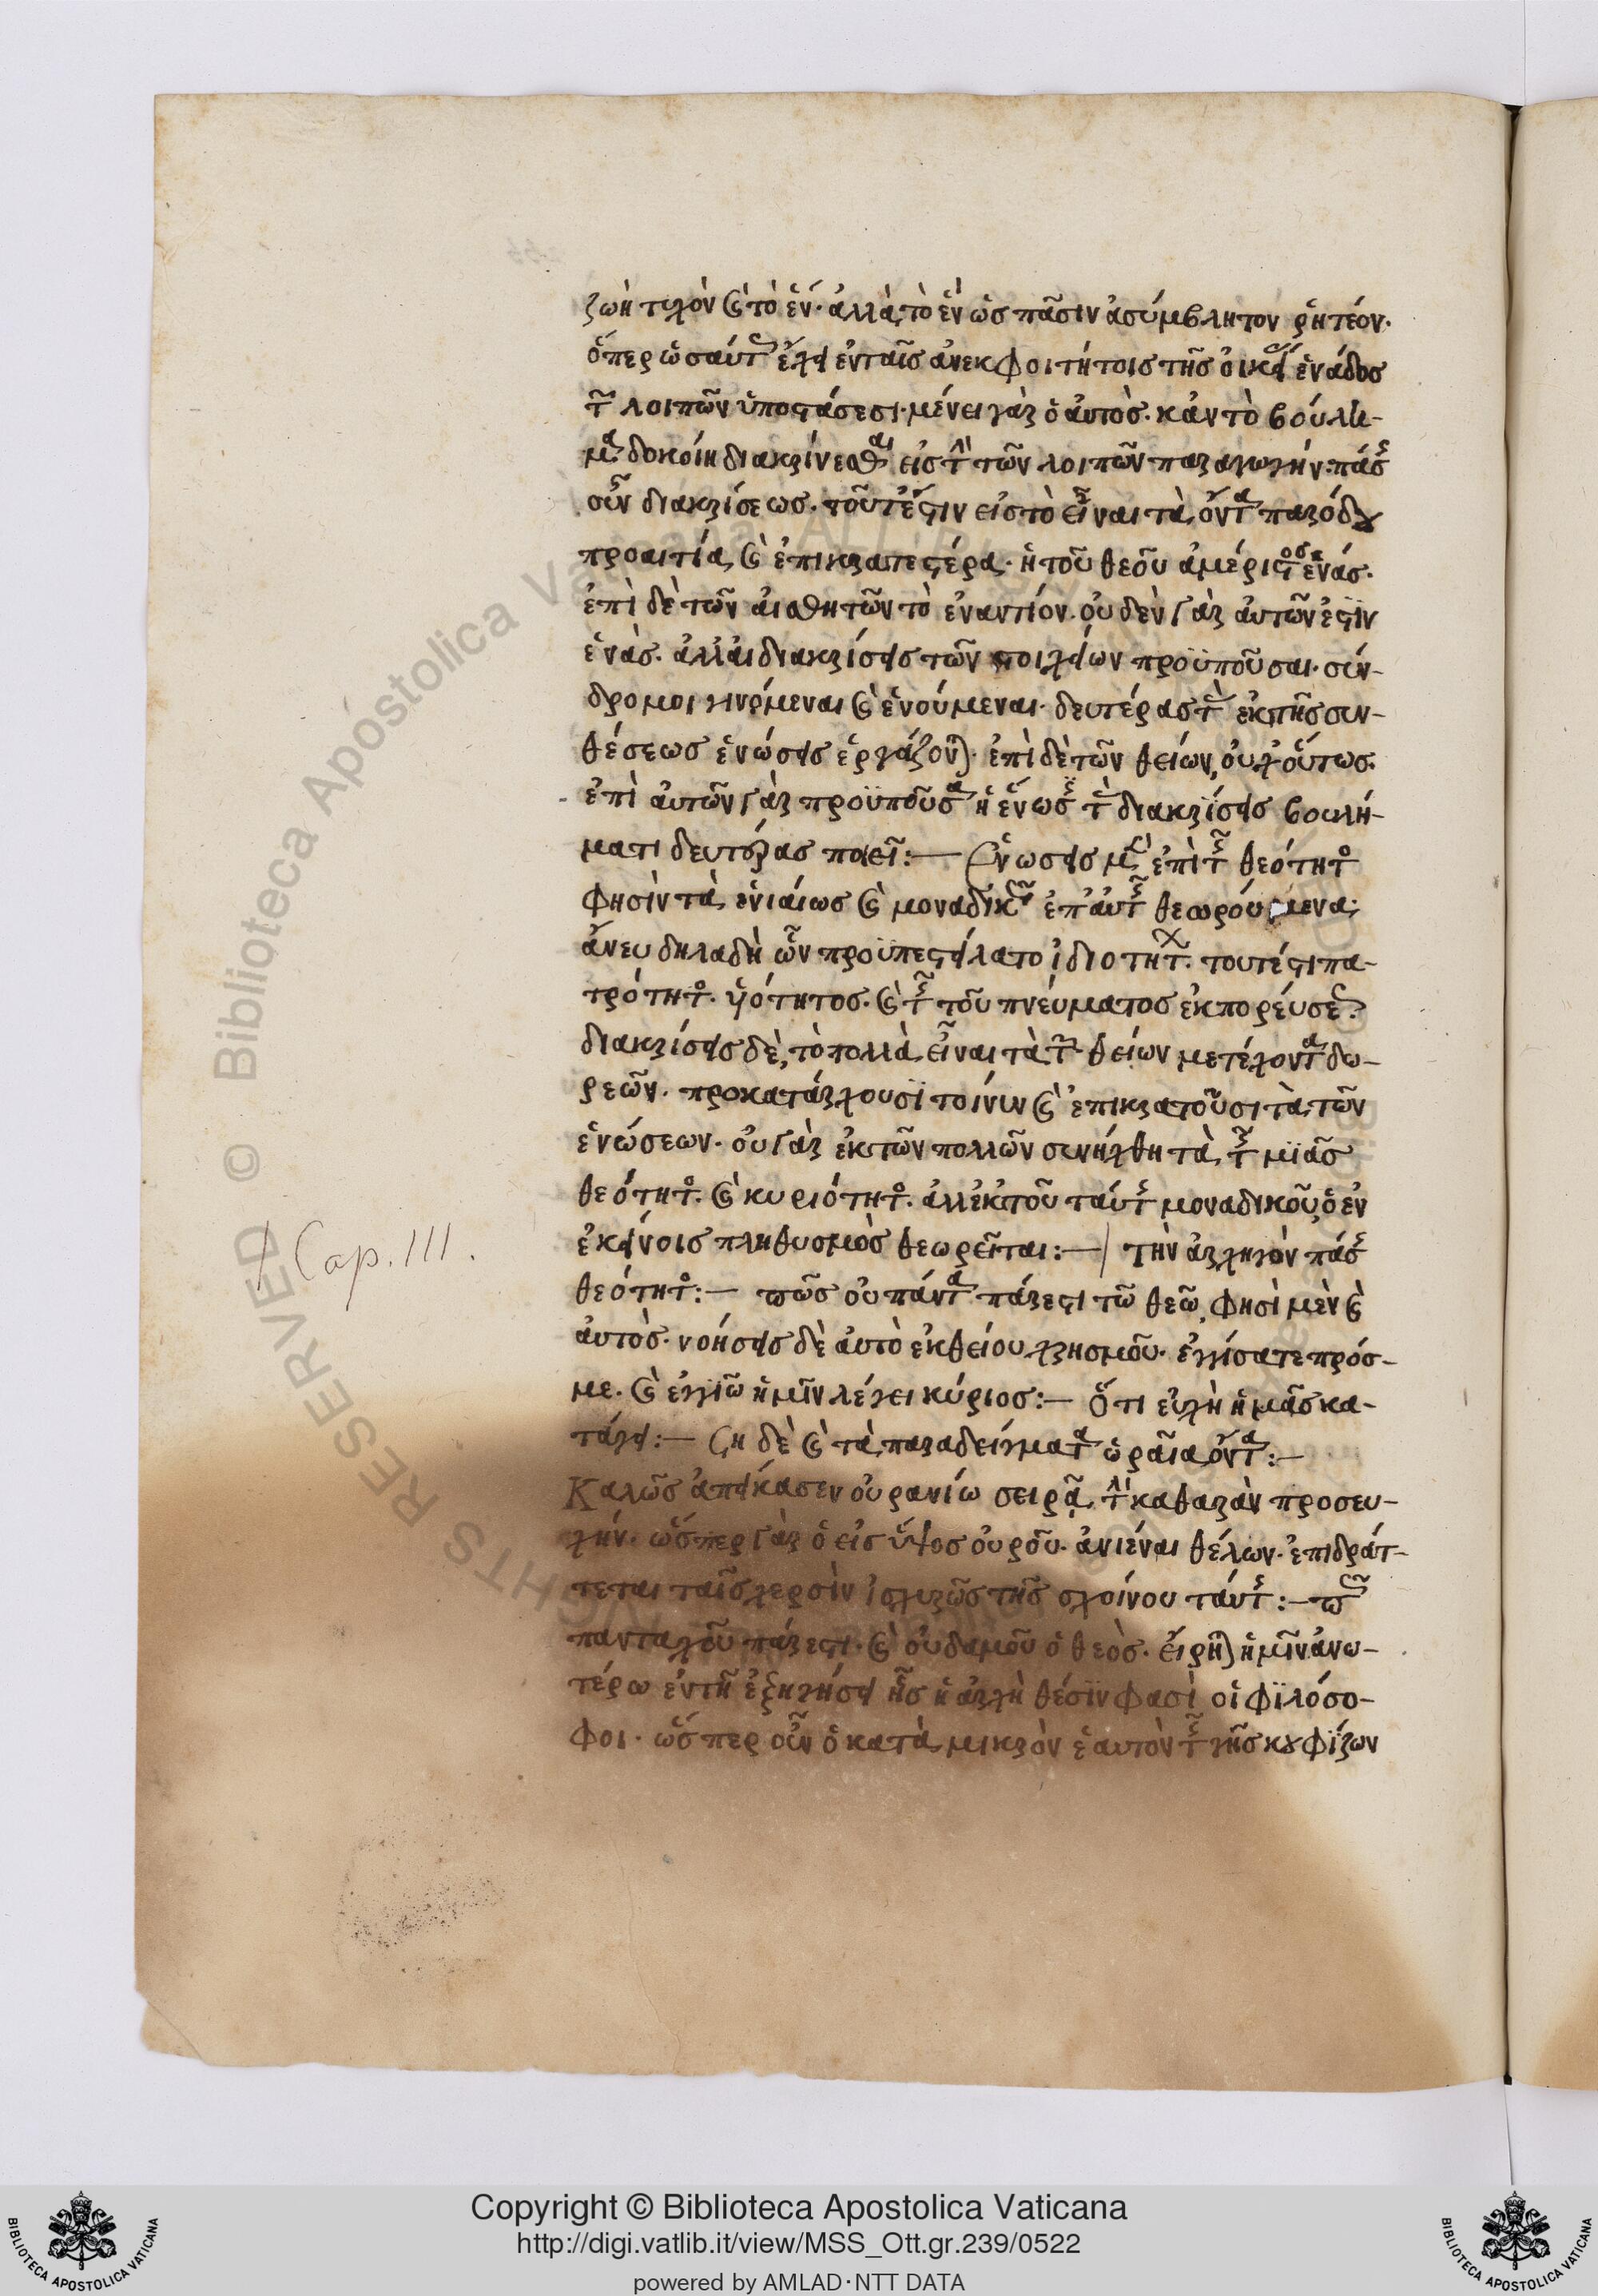 ζωὴ τυχὸν καὶ τὸ ἕν· ἀλλὰ τὸ ἓν ὡς πᾶσιν ἀσύμβλητον ῥητέον·
ὅπερ ὡσαύτως ἔχει ἐν ταῖς ἀνεκφοιτήτοις τῆς οἰκείας ἑνάδος
τῶν λοιπῶν ὑποστάσεσι· μένει γὰρ ὁ αὐτὸς· κἂν τὸ βούλη-
μα δοκοίη διακρίνεσθαι εἰς τὴν τῶν λοιπῶν παραγωγήν: πάσης
οὖν διακρίσεως· τουτέστιν εἰς τὸ εἶναι τὰ ὄντα παρόδου
προαιτία καὶ ἐπικρατεστέρα· ἡ τοῦ θεοῦ ἀμέριστος ἑνάς·
ἐπὶ δὲ τῶν αἰσθητῶν τὸ ἐναντίον· οὐδὲν γὰρ αὐτῶν ἐστιν
ἑνὰς· ἀλλ' αἱ διακρίσεις τῶν στοιχείων προϋποῦσαι· σύν-
δρομοι γινόμεναι καὶ ἑνούμεναι· δευτέρας τὰς ἐκ τῆς συν-
θέσεως ἑνώσεις ἐργάζονται· ἐπὶ δὲ τῶν θείων, οὐχ οὕτως·
ἐπὶ αὐτῶν γὰρ προϋποῦσα ἡ ἕνωσις τὰς διακρίσεις βουλή-
ματι δευτέρας ποιεῖ:— Ἑνώσεις μὲν ἐπὶ τῆς θεότητος
φησὶν τὰ ἑνιαίως καὶ μοναδικῶς ἐπ' αὐτῆς θεωρούμενα·
ἄνευ δηλαδὴ ὧν προϋπεστείλατο ἰδιοτήτων· τουτέστι πα-
τρότητος· υἱότητος· καὶ τῆς τοῦ πνεύματος ἐκπορεύσεως·
διακρίσεις δὲ, τὸ πολλὰ εἶναι τὰ τῶν θείων μετέχοντα δω-
ρεῶν· προκατάρχουσι τοίνυν καὶ ἐπικρατοῦσι τὰ τῶν
ἑνώσεων· οὐ γὰρ ἐκ τῶν πολλῶν συνήχθη τὰ τῆς μιᾶς
θεότητος καὶ κυριότητος· ἀλλ' ἐκ τοῦ ταύτης μοναδικοῦ, ὁ ἐν
ἐκείνοις πληθυσμὸς θεωρεῖται:—| τὴν ἀρχηγὸν πάσης
Cap. III.
θεότητος:— πῶς οὐ πάντα πάρεστι τῶ θεῶ, φησὶ μὲν καὶ
αὐτὸς· νοήσεις δὲ αὐτὸ ἐκ θείου χρησμοῦ· ἐγγίσατε πρός-
με· καὶ ἐγγιῶ ἡμῖν λέγει κύριος:— Ὅτι εὐχὴ ἡμᾶς κα-
τάγει:— ζη δὲ καὶ τὰ παραδείγματα ὡραῖα ὄντα:—
Καλῶς ἀπείκασεν οὐρανίω σειρᾶ, τὴν καθαρὰν προσευ-
χήν· ὥσπερ γὰρ ὁ εἰς ὕψος οὐρανοῦ ἀνιέναι θέλων· ἐπιδράτ-
τεται ταῖς χερσὶν ἰσχυρῶς τῆς σχοίνου ταύτης:— πῶς
πανταχοῦ πάρεστι· καὶ οὐδαμοῦ ὁ θεὸς· εἴρηται ἡμῖν ἀνω-
τέρω ἐν τῆ ἐξηγήσει ἧς ἡ ἀρχὴ θέσιν φασὶ οἱ φιλόσο-
φοι· ὥσπερ οὖν ὁ κατὰ μικρὸν ἑαυτὸν τῆς γῆς κουφίζων
Copyright © Biblioteca Apostolica Vaticana
http://digi.vatlib.it/view/MSS_Ott.gr.239/0522
powered by AMLAD·NTT DATA
BIBLIOTECA APOSTOLICA VATICANA
BIBLIOTECA APOSTOLICA VATICANA